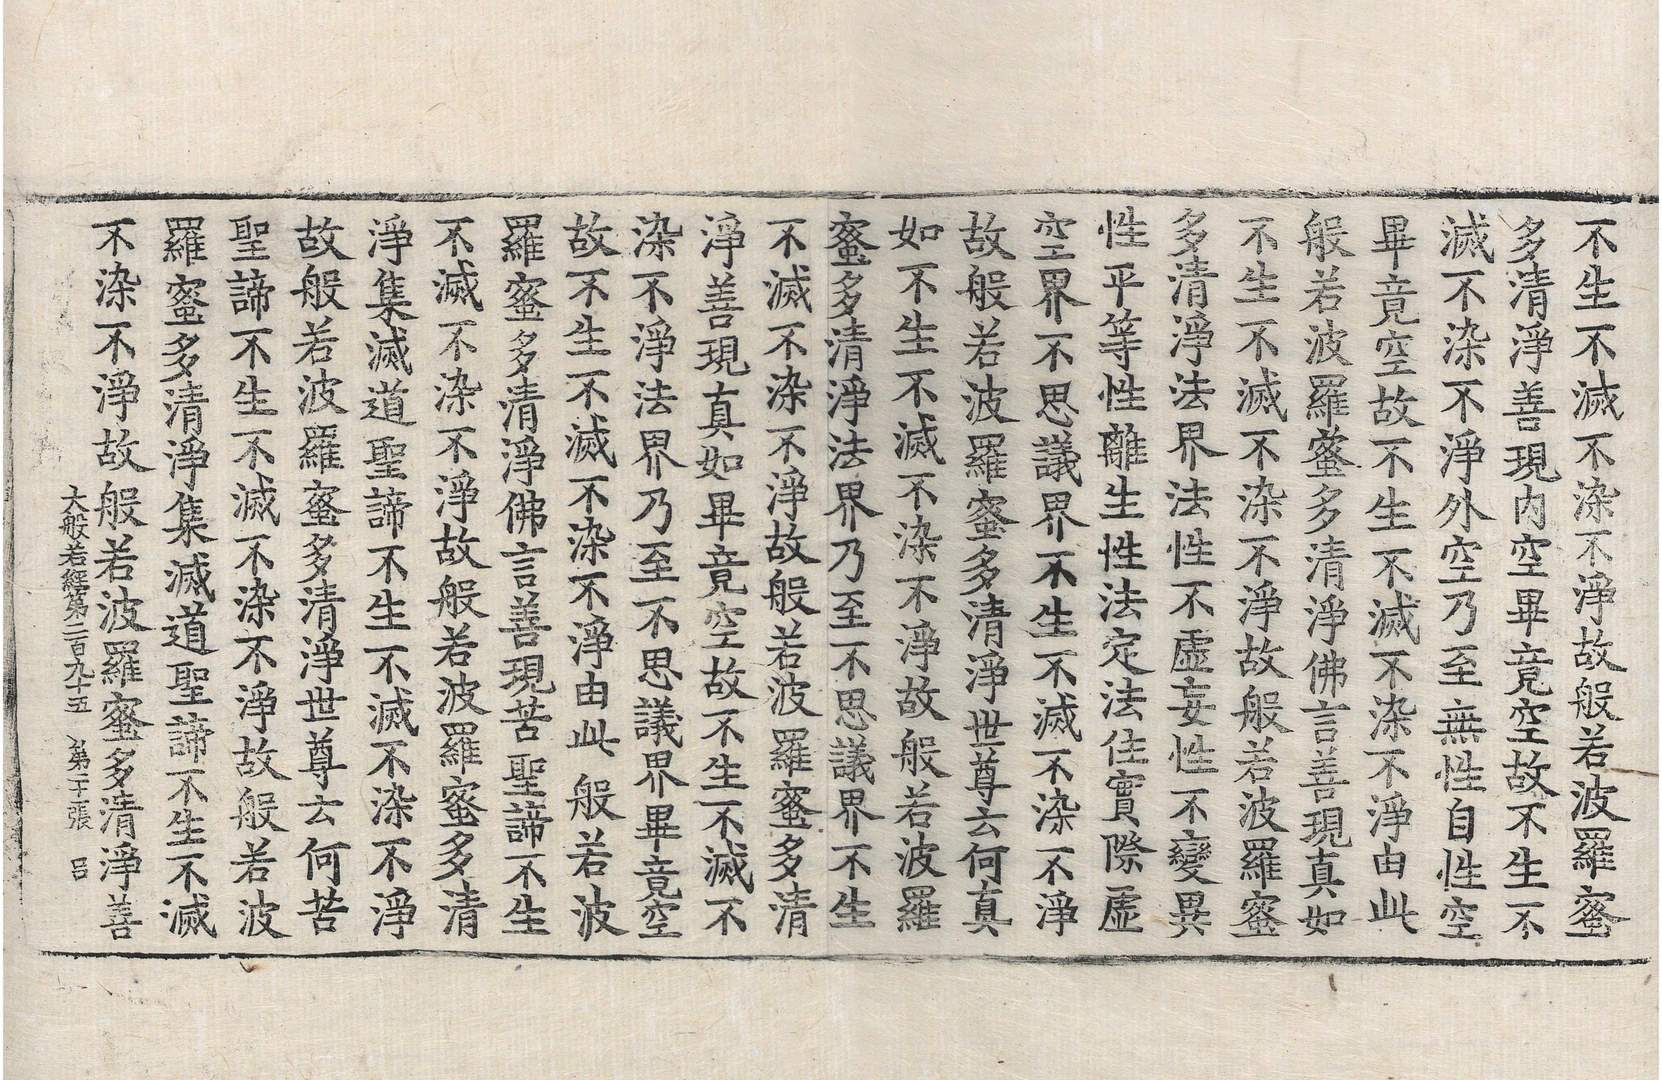 不生不滅不染不淨故般若波羅蜜
多清淨善現內空畢竟空故不生不
滅不染不淨外空乃至無性自性空
畢竟空故不生不滅不染不淨由此
般若波羅蜜多清淨佛言善現真如
不生不滅不染不淨故般若波羅蜜
多清淨法界法性不虛妄性不變異
性平等性離生性法定法住實際虛
空界不思議界不生不滅不染不淨
故般若波羅蜜多清淨世尊云何真
如不生不滅不染不淨故般若波羅
蜜多清淨法界乃至不思議界不生
不滅不染不淨故般若波羅蜜多清
淨善現真如畢竟空故不生不滅不
染不淨法界乃至不思議界畢竟空
故不生不滅不染不淨由此般若波
羅蜜多清淨佛言善現苦聖諦不生
不滅不染不淨故般若波羅蜜多清
淨集滅道聖諦不生不滅不染不淨
故般若波羅蜜多清淨世尊云何苦
聖諦不生不滅不染不淨故般若波
羅蜜多清淨集滅道聖諦不生不滅
不染不淨故般若波羅蜜多清淨善
大般若經第二百九十五 第二十張 呂